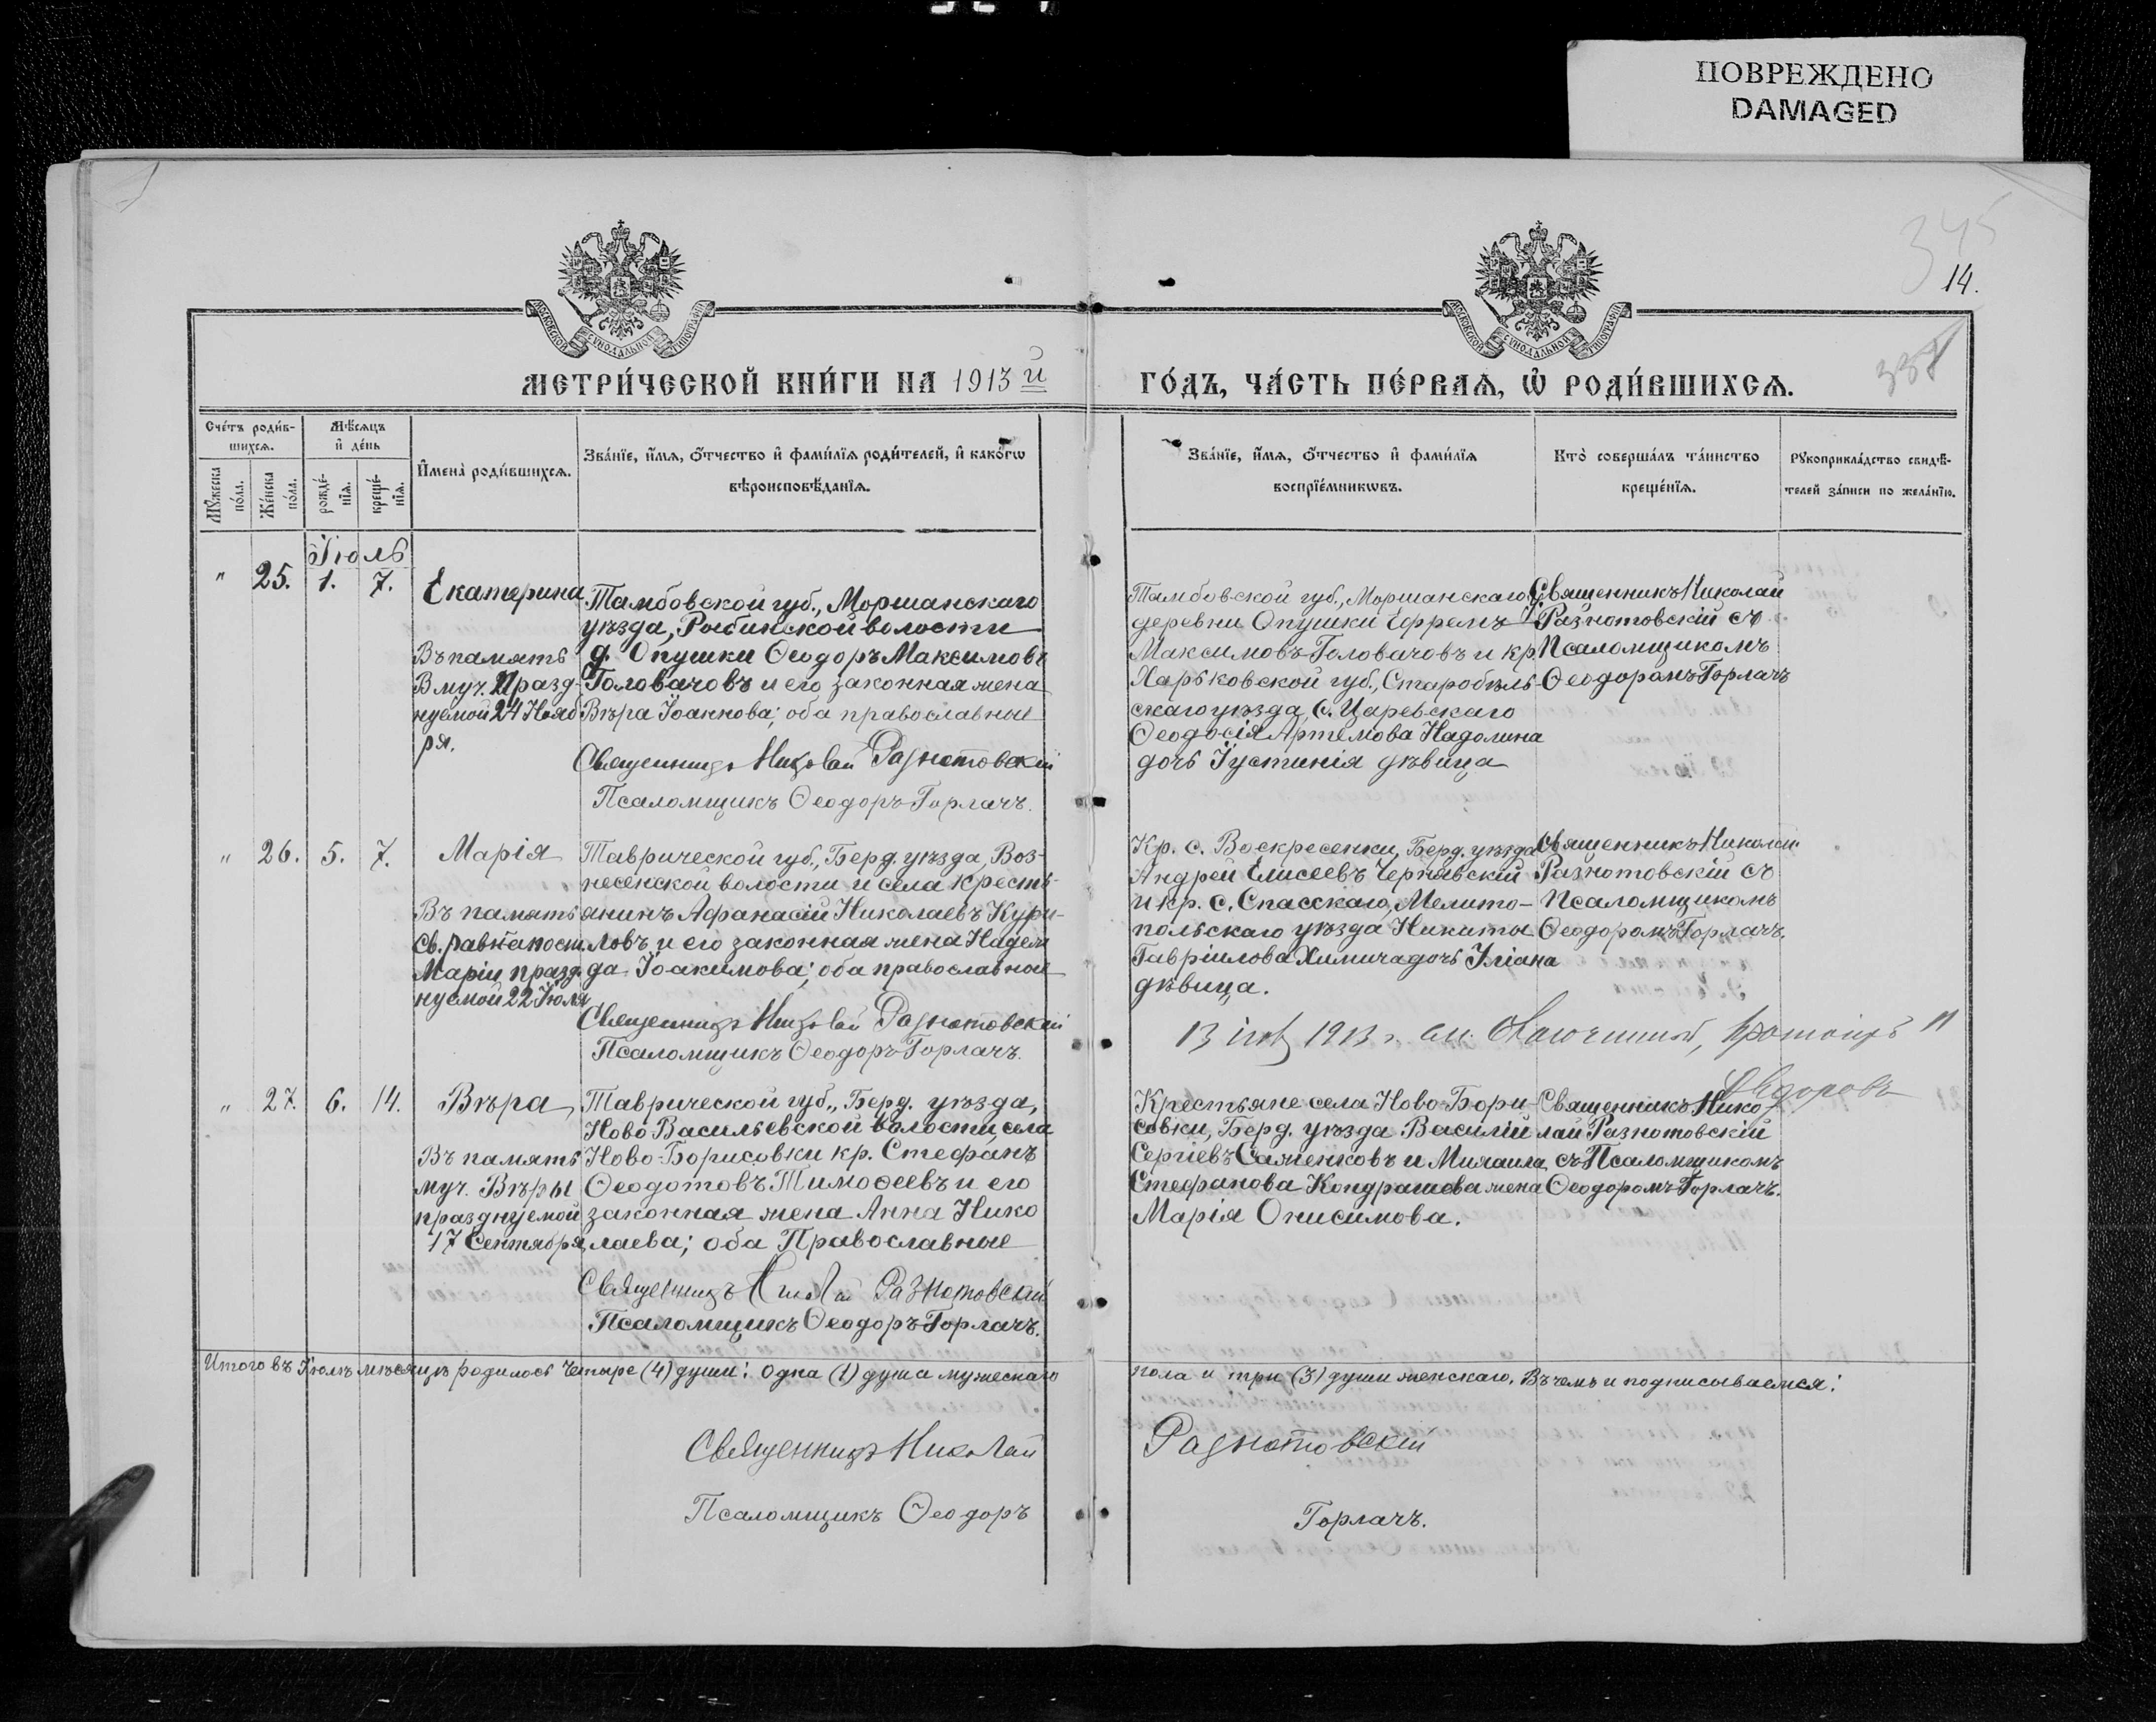 ПОВРЕЖДЕНО
DAMAGED
345
14.
МОСКОВСКОЙ СѴНОДАЛЬНОЙ ТИПОГРАФІИ
МОСКОВСКОЙ СѴНОДАЛЬНОЙ ТИПОГРАФІИ
МЕТРИ́ЧЕСКОЙ КНИ́ГИ НА 1913 й
ГО́ДЪ, ЧА́СТЬ ПЕ́РВАѦ, Ѡ҆ РОДИ́ВШИХСѦ.
Сче́тъ роди́в-
шихсѧ.
Мꙋ́жеска
по́ла.
Же́нска
по́ла.
Мѣ́сѧцъ
и҆ де́нь
рожде́-
нїѧ.
креще́-
нїѧ.
И҆мена̀ роди́вшихсѧ.
Зва́нїе, и҆́мѧ, ѻ҆́тчество и҆ фами́лїѧ роди́телей, и҆ како́гѡ
вѣроисповѣ́данїѧ.
Зва́нїе, и҆́мѧ, ѻ҆́тчество и҆ фами́лїѧ
воспрїе́мникѡвъ.
Кто̀ соверша́лъ та́инство
креще́нїѧ.
Рꙋкоприкла́дство свидѣ́-
телей за́писи по жела́нїю.
Іюль
" 25. 1. 7.
Екатерина
Въ память
В муч. Празд-
нуемой 24 Нояб
ря.
Тамбовской губ., Моршанскаго
уѣзда, Рыбинской волости
д. Опушки Ѳеодоръ Максимовъ
Головачовъ и его законная жена
Вѣра Іоаннова; оба православные
Священникъ Николай Разнотовскій
Псаломщикъ Ѳеодоръ Горлачъ.
Тамбовской губ., Моршанскаго у
деревни Опушки Ефремъ
Максимовъ Головачовъ и кр.
Харьковской губ., Старобѣль-
скаго уѣзда, с. Царевскаго
Ѳеодосія Артемова Надолина
дочь Іустинія дѣвица
Священникъ Николай
Разнотовскій съ
Псаломщикомъ
Ѳеодоромъ Горлачъ
" 26. 5. 7.
Марія
Въ память
Св. равноапост.
Маріи празд-
нуемой 22 Іюля
Таврической губ., Берд. уѣзда, Воз-
несенской волости и села кресть-
янинъ Афанасій Николаевъ Кури-
ловъ и его законная жена Надеж
да Іоакимова; оба православные
Священникъ Николай Разнотовскій
Псаломщикъ Ѳеодоръ Горлачъ.
Кр. с. Воскресенки, Берд. уѣзда
Андрей Елисеевъ Чернявскій
и кр. с. Спасскаго, Мелито-
польскаго уѣзда Никиты
Гавріилова Химича дочь Уліана
дѣвица.
Священникъ Николай
Разнотовскій съ
Псаломщикомъ
Ѳеодоромъ Горлачъ.
13 1913 г.
Ѳедоровъ
" 27. 6. 14.
Вѣра
Въ память
муч. Вѣры
празднуемой
17 Сентября
Таврической губ., Берд. уѣзда,
Ново Васильевской волости, села
Ново-Борисовки кр. Стефанъ
Ѳеодотовъ Тимоѳеевъ и его
законная жена Анна Нико
лаева; оба Православные
Священникъ Николай Разнотовскій
Псаломщикъ Ѳеодоръ Горлачъ.
Крестьяне села Ново-Бори-
совки, Берд. уѣзда Василій
Сергіевъ Саженковъ и Михаила
Стефанова Кондрашева жена
Марія Онисимова.
Священникъ Нико
лай Разнотовскій
съ Псаломщикомъ
Ѳеодоромъ Горлачъ.
Итого въ Іюлѣ мѣсяцѣ родилось четыре (4) души: одна (1) душа мужескаго
пола и три (3) души женскаго. Въ чемъ и подписываемся:
Священникъ Николай
Разнотовскій
Псаломщикъ Ѳеодоръ
Горлачъ.